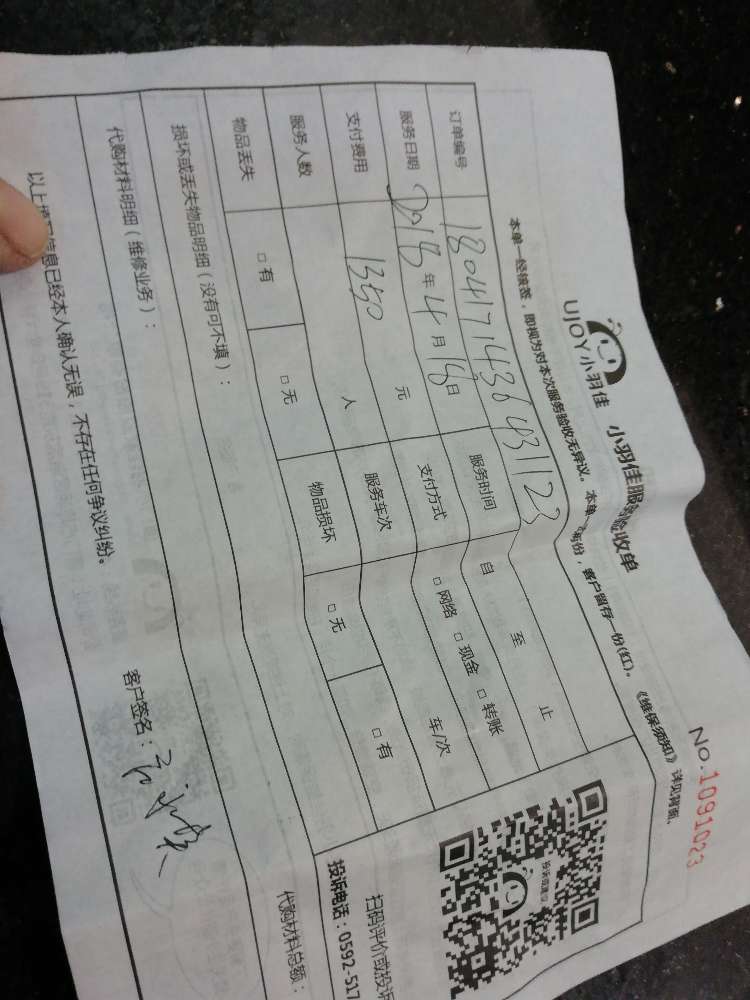 UJOY小羽佳 小羽佳服务验收单
No.1091023
本单一经续签，即视为对本次服务验收无异议。本单 两份，客户留存一份(红)。《维保须知》详见背面。
订单编号 180417143643 1123
服务日期 2018年4月18日 服务时间 自 至 止
支付费用 1350 元 支付方式 □网络 □现金 □转账
服务人数 人 服务车次 车/次
物品丢失 □有 □无 物品损坏 □无 □有
损坏或丢失物品明细（没有可不填）：
扫码评价或投诉
投诉电话：0592-517
代购材料明细（维修业务）：
代购材料总额：
以上 信息已经本人确认无误，不存在任何争议纠纷。
客户签名：